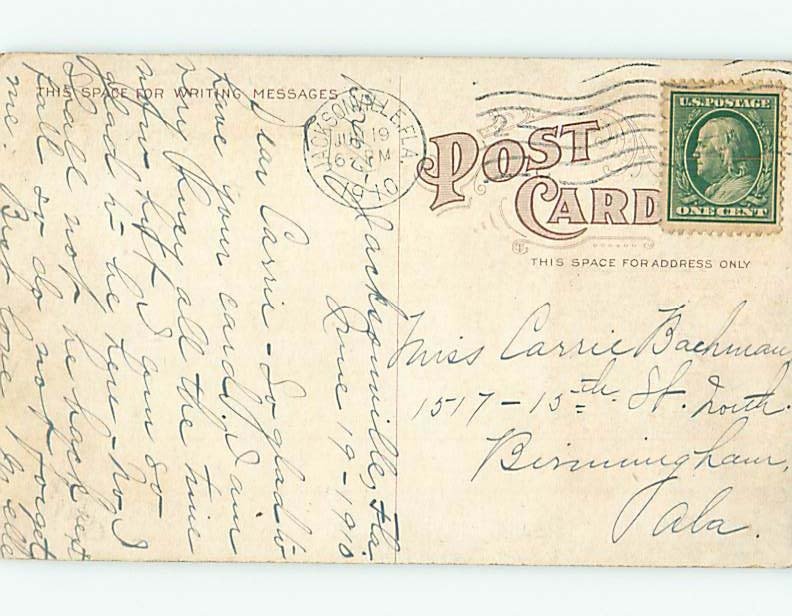 THIS SPACE FOR WRITING MESSAGES
Jacksonville, Fla.
June 19-1910
Dear Carrie - So glad to
have your card. I am
very busy all the time
now but I am so
glad to be here - No I
shall not be back next
Fall so do not forget
me. Best love
JACKSONVILLE, FLA.
JUN 19
6 PM
1910
POST
CARD
U.S. POSTAGE
ONE CENT
THIS SPACE FOR ADDRESS ONLY
Miss Carrie Bachman
1517-15th St. North.
Birmingham,
Ala.